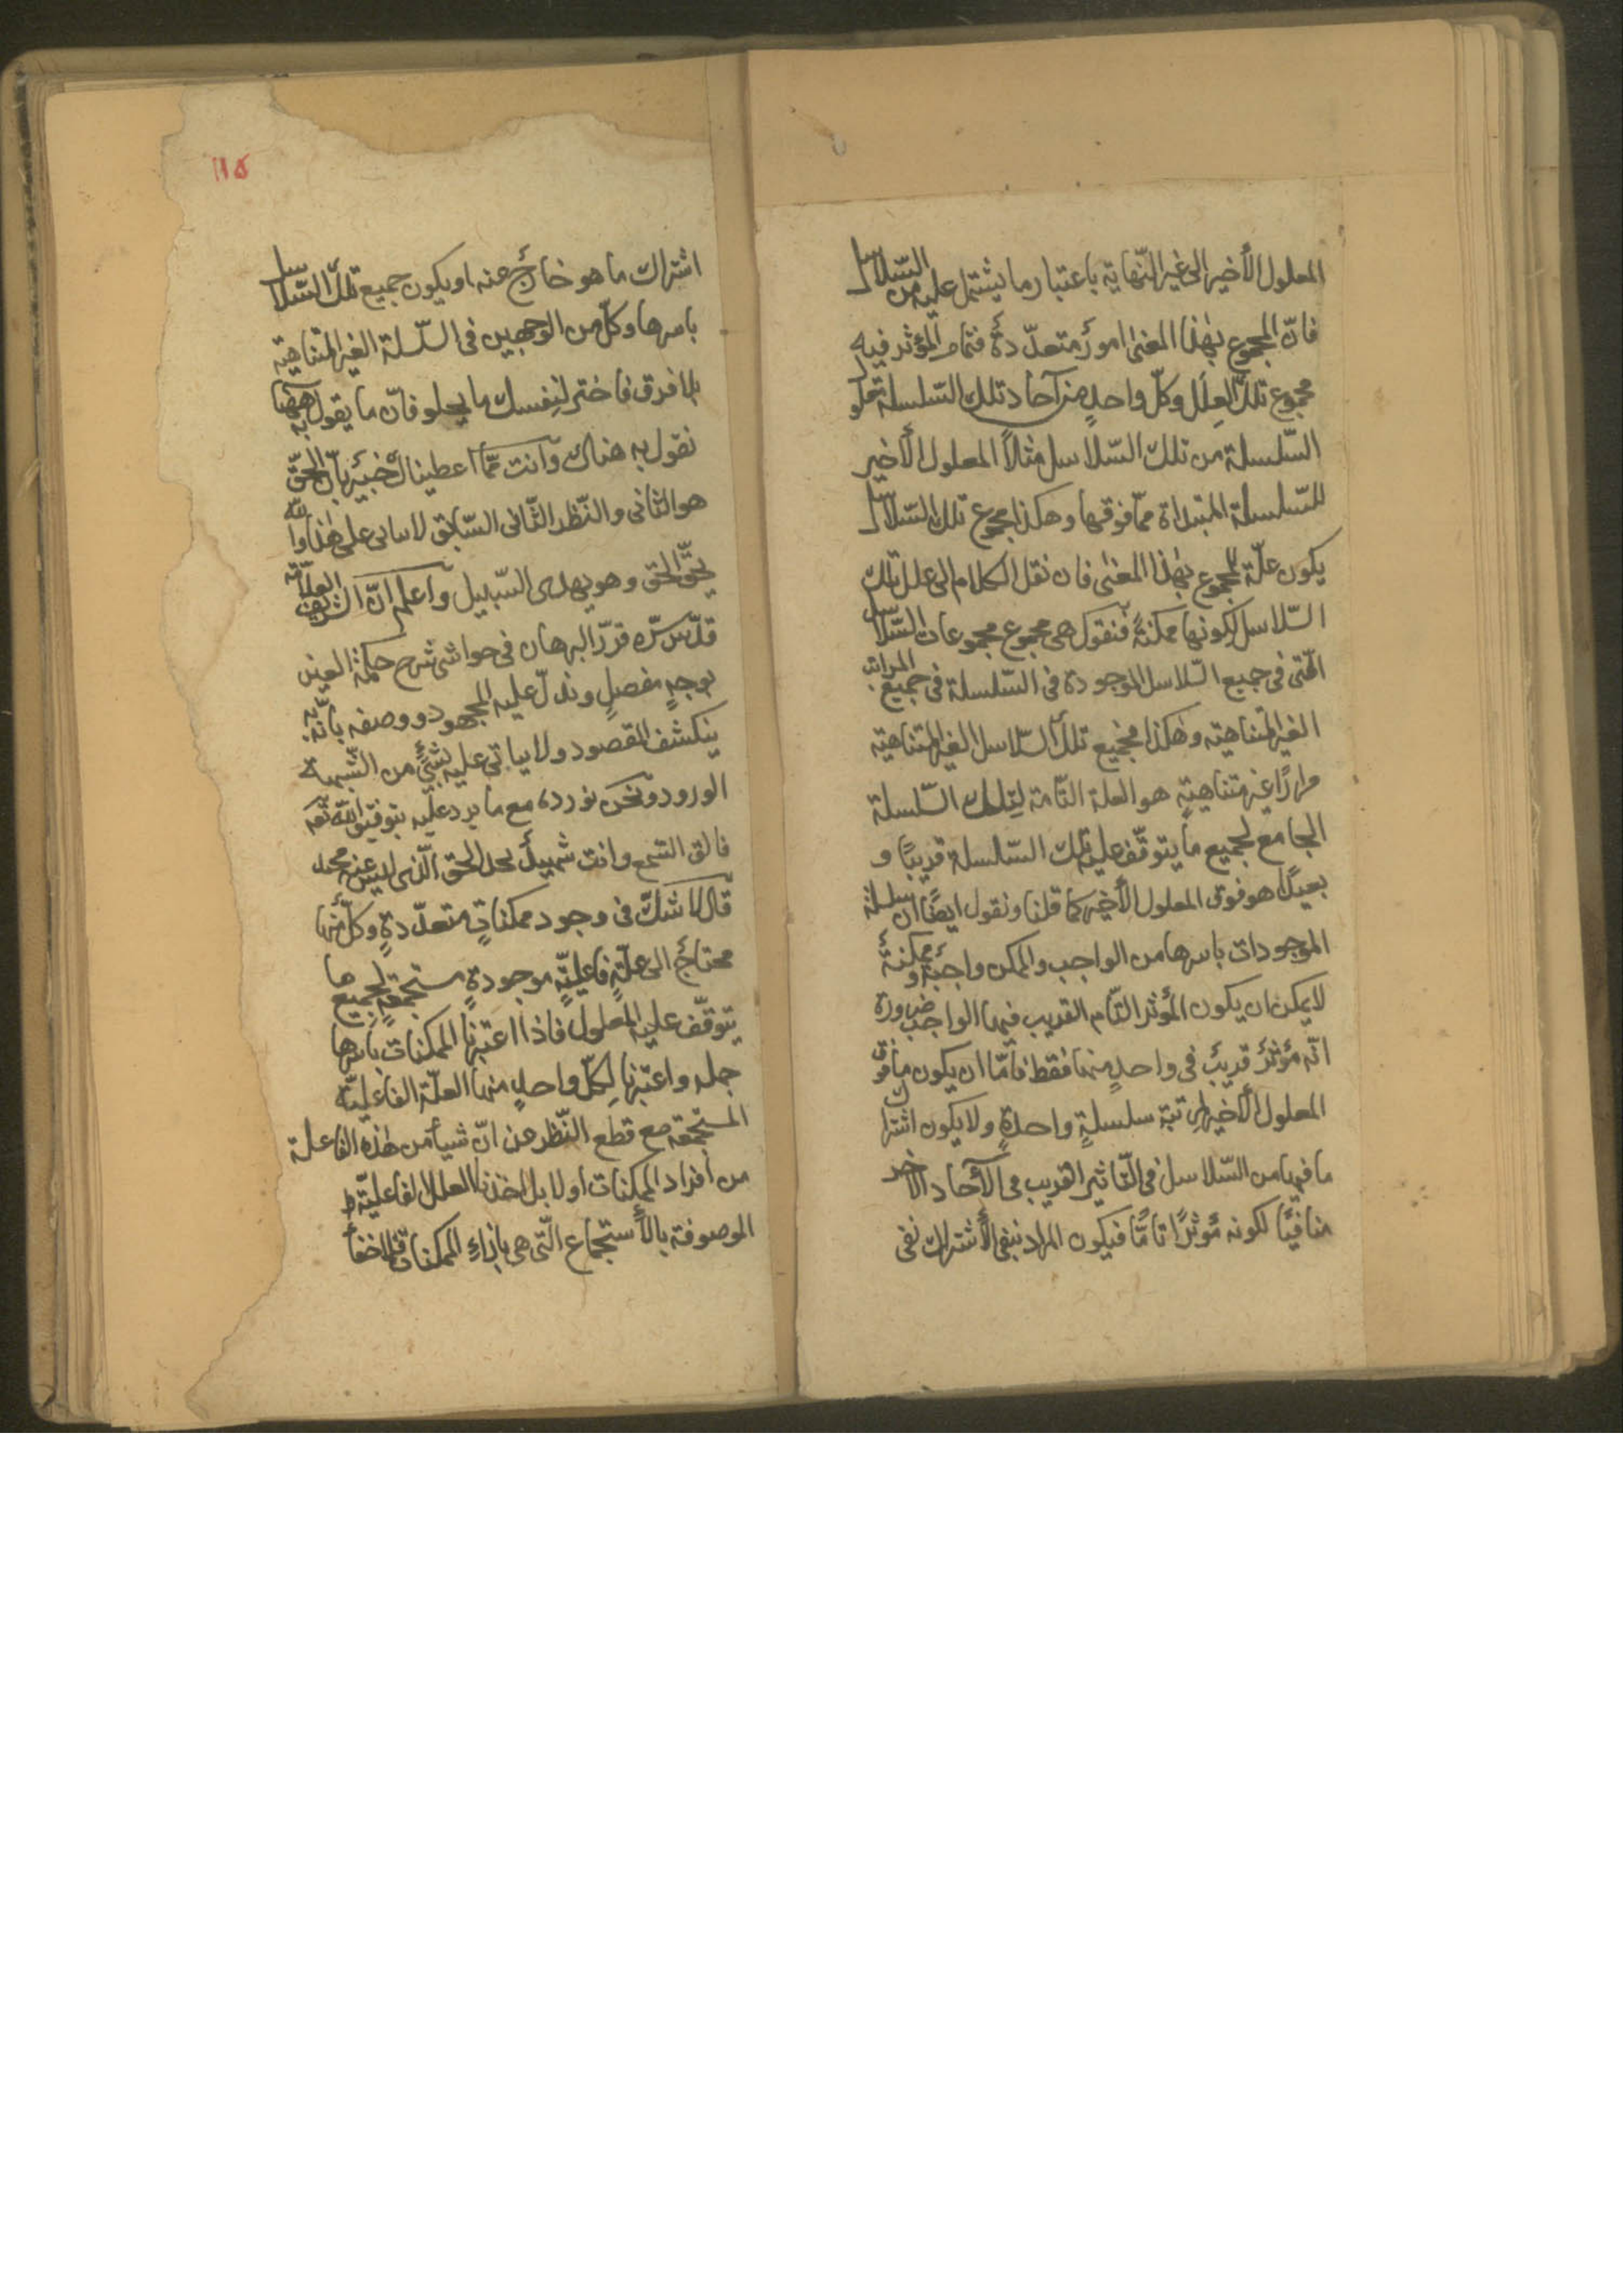 المعلول الأخير الى غير النّهاية باعتبار ما يشتمل عليه من السّلاسل
فانّ المجموع بهذا المعنى امورٌ متعدّدةٌ فتمام المؤثر فيه
مجموع تلك العِلل وكلّ واحدٍ من آحاد تلك السّلسلة تعلو
السّلسلة من تلك السّلاسل مثلاً المعلول الأخير
للسّلسلة المبتداة ممّا فوقها وهكذا مجموع تلك السّلاسل
يكون علّة للمجموع بهذا المعنى فان نقل الكلام الى علل تلك
السّلاسل لكونها ممكنةً فنقول هى مجموع مجموعات السّلاسل
الّتى فى جميع السّلاسل الموجودة فى السّلسلة فى جميع المراتب
الغير المتناهية وهكذا فجميع تلك السّلاسل الغير المتناهية
مرارًا غير متناهيةٍ هو العلة التّامة لتلك السّلسلة
الجامع لجميع ما يتوقّف عليه تلك السّلسلة قريبًا و
بعيدًا هو فوق المعلول الأخير كما قلنا ونقول ايضًا ان سلسلة
الموجودات باسرها من الواجب والممكن واجبةٌ و ممكنةٌ
لا يمكن ان يكون المؤثر التّام القريب فيها الواجب ضرورة
انّه مؤثرٌ قريبٌ فى واحدٍ منها فقط فامّا ان يكون ما فوق
المعلول الأخير مرتبة سلسلةٍ واحدةٍ ولا يكون اشتراك
ما فيها من السّلاسل فى التّاثير القريب فى الآحاد الأخر
منافيًا لكونه مؤثرًا تامًّا فيكون المراد بنفى الأشتراك نفى
١١٥
اشتراك ما هو خارجٌ عنه او يكون جميع تلك السّلاسل
باسرها وكلّ من الوجهين فى السّلسلة الغير المتناهية
بلا فرق فاختر لنفسك ما يحلو فانّ ما يقول به ههنا
نقول به هناك وانت ممّا اعطيناك خبيرٌ بانّ الحقّ
هو الثانى والنّظر الثّانى السّابق لا ياتى على هذا والله
يحقّ الحق وهو يهدى السّبيل واعلم انّ الشّريف العلّامة
قدّس سّره قرّر البرهان فى حواشى شرح حكمة العين
بوجهٍ مفصلٍ وبذل عليه المجهود ووصفه بانّه به
ينكشف المقصود ولا ياتى عليه شئٌ من الشّبهة
الورود ونحن نورده مع ما يرد عليه بتوفيق الله تع
فالق السّمع وانت شهيدٌ
قال لا شكّ فى وجود ممكناتٍ متعدّدةٍ وكلٌّ منها
محتاجٌ الى علّةٍ فاعليّةٍ موجودةٍ مستجمعةٍ لجميع ما
يتوقّف عليه المعلول فاذا اعتبرنا الممكنات باسرها
جملة واعتبرنا لِكلّ واحدٍ منها العلّة الفاعليّة
المستجمعة مع قطع النّظر عن انّ شيأً من هذه الفاعلة
من افراد الممكنات او لا بل اخذنا العلل الفاعليّة
الموصوفة بالأستجماع الّتى هى بازاء الممكنات فلا خفأ